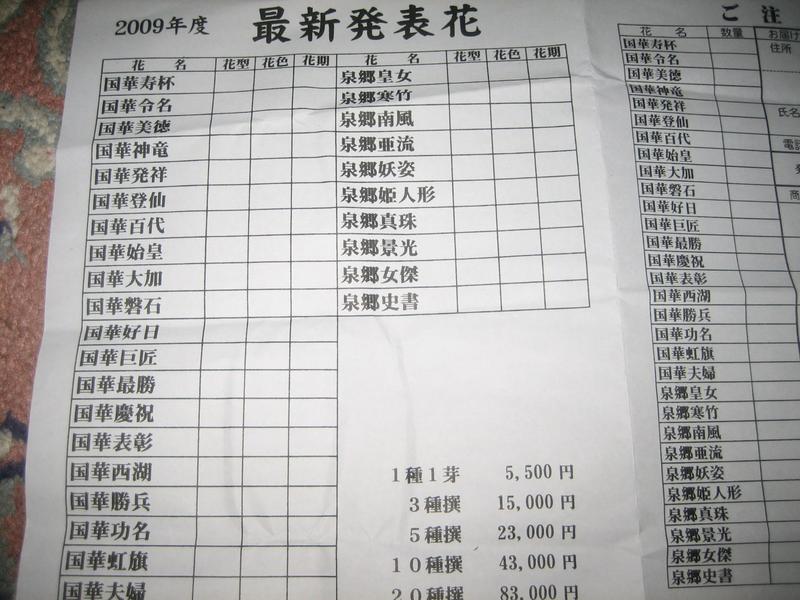 2009年度 最新発表花
花名 花型 花色 花期 花名 花型 花色 花期
国華寿杯 泉郷皇女
国華令名 泉郷寒竹
国華美徳 泉郷南風
国華神竜 泉郷亜流
国華発祥 泉郷妖姿
国華登仙 泉郷姫人形
国華百代 泉郷真珠
国華始皇 泉郷景光
国華大加 泉郷女傑
国華磐石 泉郷史書
国華好日
国華巨匠
国華最勝
国華慶祝
国華表彰
国華西湖
国華勝兵
国華功名
国華虹旗
国華夫婦
1種1芽 5,500円
3種撰 15,000円
5種撰 23,000円
10種撰 43,000円
20種撰 83,000円
ご注
花名 数量 お届け
国華寿杯 住所
国華令名
国華美徳
国華神竜
国華発祥 氏名
国華登仙
国華百代 電話
国華始皇
国華大加
国華磐石 商
国華好日
国華巨匠
国華最勝
国華慶祝
国華表彰
国華西湖
国華勝兵
国華功名
国華虹旗
国華夫婦
泉郷皇女
泉郷寒竹
泉郷南風
泉郷亜流
泉郷妖姿
泉郷姫人形
泉郷真珠
泉郷景光
泉郷女傑
泉郷史書